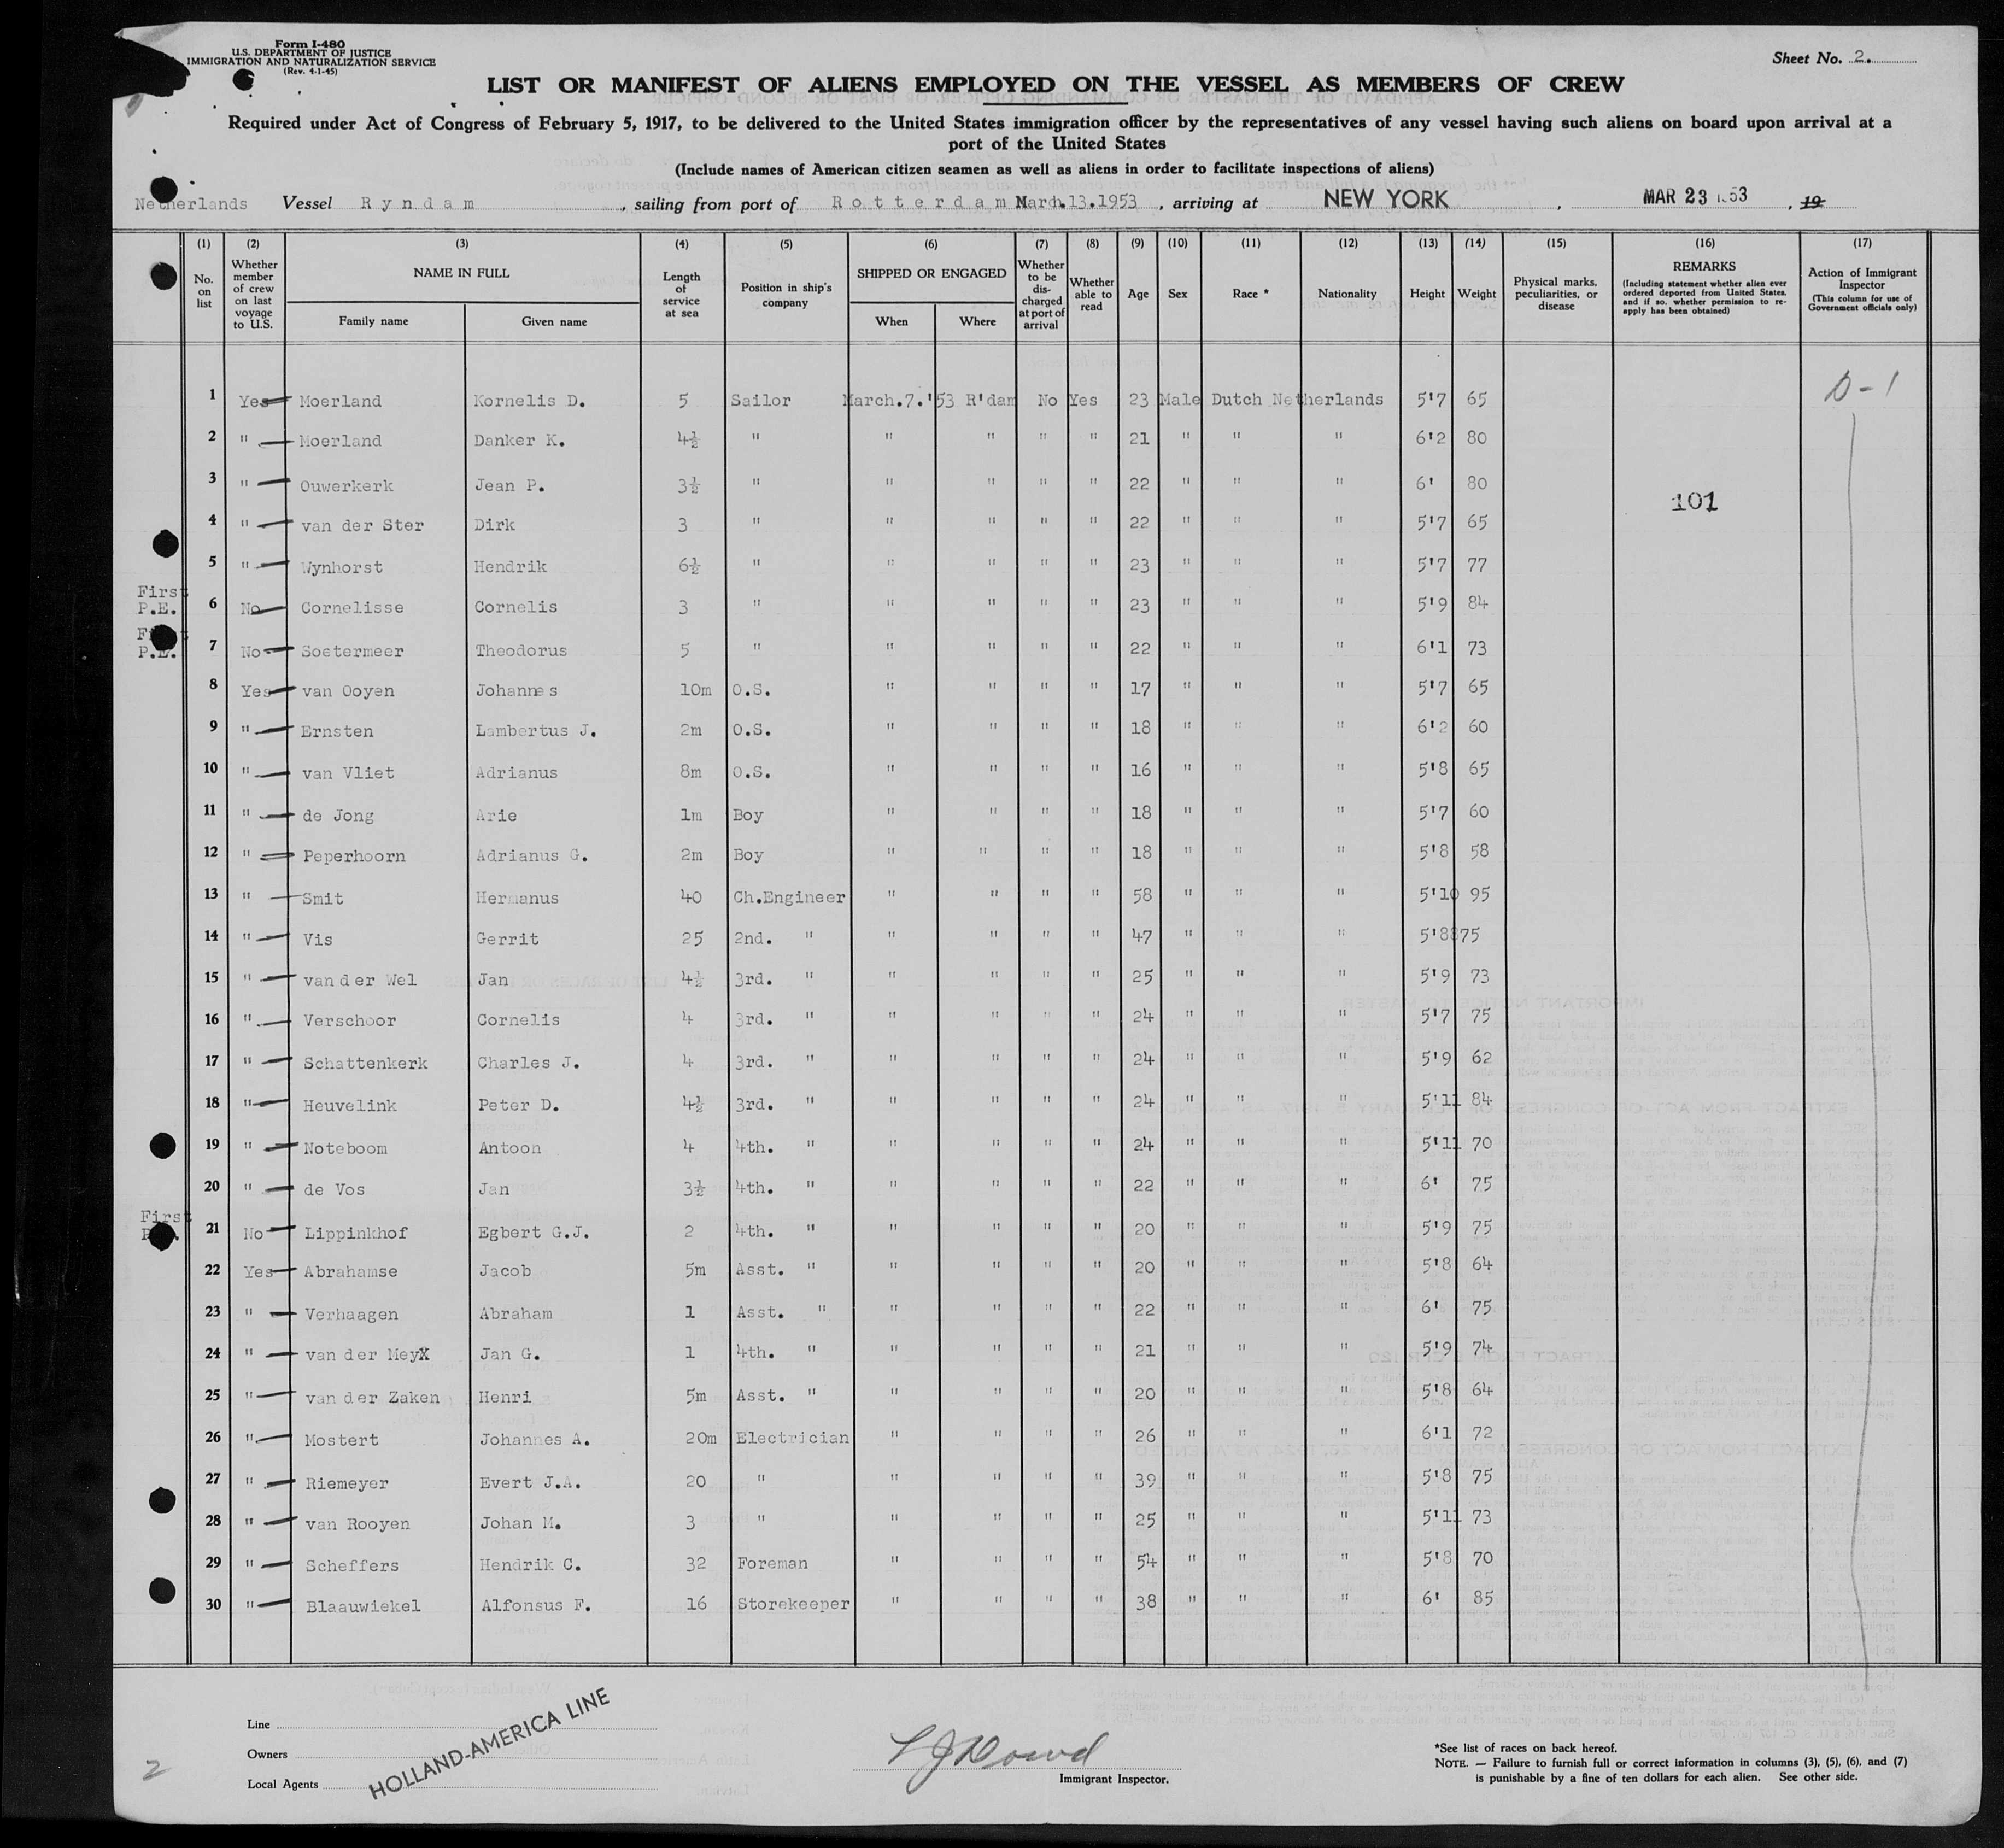 Form I-480
U.S. DEPARTMENT OF JUSTICE
IMMIGRATION AND NATURALIZATION SERVICE
(Rev. 4-1-45)
Sheet No. 2.
LIST OR MANIFEST OF ALIENS EMPLOYED ON THE VESSEL AS MEMBERS OF CREW
Required under Act of Congress of February 5, 1917, to be delivered to the United States immigration officer by the representatives of any vessel having such aliens on board upon arrival at a
port of the United States
(Include names of American citizen seamen as well as aliens in order to facilitate inspections of aliens)
Netherlands Vessel Ryndam, sailing from port of Rotterdam March.13.1953, arriving at NEW YORK, MAR 23 1953, 19
(1) (2) (3) (4) (5) (6) (7) (8) (9) (10) (11) (12) (13) (14) (15) (16) (17)
No. on list
Whether member of crew on last voyage to U.S.
NAME IN FULL
Family name
Given name
Length of service at sea
Position in ship's company
SHIPPED OR ENGAGED
When
Where
Whether to be discharged at port of arrival
Whether able to read
Age
Sex
Race *
Nationality
Height
Weight
Physical marks, peculiarities, or disease
REMARKS
(Including statement whether alien ever ordered deported from United States, and if so, whether permission to reapply has been obtained)
Action of Immigrant Inspector
(This column for use of Government officials only)
D-1
1 Yes Moerland Kornelis D. 5 Sailor March.7.'53 R'dam No Yes 23 Male Dutch Netherlands 5'7 65
2 " Moerland Danker K. 4½ " " " " " 21 " " " 6'2 80
3 " Ouwerkerk Jean P. 3½ " " " " " 22 " " " 6' 80
101
4 " van der Ster Dirk 3 " " " " " 22 " " " 5'7 65
5 " Wynhorst Hendrik 6½ " " " " " 23 " " " 5'7 77
First P.E. 6 No Cornelisse Cornelis 3 " " " " " 23 " " " 5'9 84
First P.E. 7 No Soetermeer Theodorus 5 " " " " " 22 " " " 6'1 73
8 Yes van Ooyen Johannes 10m O.S. " " " " 17 " " " 5'7 65
9 " Ernsten Lambertus J. 2m O.S. " " " " 18 " " " 6'2 60
10 " van Vliet Adrianus 8m O.S. " " " " 16 " " " 5'8 65
11 " de Jong Arie 1m Boy " " " " 18 " " " 5'7 60
12 " Peperhoorn Adrianus G. 2m Boy " " " " 18 " " " 5'8 58
13 " Smit Hermanus 40 Ch.Engineer " " " " 58 " " " 5'10 95
14 " Vis Gerrit 25 2nd. " " " " " 47 " " " 5'8 75
15 " van der Wel Jan 4½ 3rd. " " " " " 25 " " " 5'9 73
16 " Verschoor Cornelis 4 3rd. " " " " " 24 " " " 5'7 75
17 " Schattenkerk Charles J. 4 3rd. " " " " " 24 " " " 5'9 62
18 " Heuvelink Peter D. 4½ 3rd. " " " " " 24 " " " 5'11 84
19 " Noteboom Antoon 4 4th. " " " " " 24 " " " 5'11 70
20 " de Vos Jan 3½ 4th. " " " " " 22 " " " 6' 75
First 21 No Lippinkhof Egbert G.J. 2 4th. " " " " " 20 " " " 5'9 75
22 Yes Abrahamse Jacob 5m Asst. " " " " " 20 " " " 5'8 64
23 " Verhaagen Abraham 1 Asst. " " " " " 22 " " " 6' 75
24 " van der MeyX Jan G. 1 4th. " " " " " 21 " " " 5'9 74
25 " van der Zaken Henri 5m Asst. " " " " " 20 " " " 5'8 64
26 " Mostert Johannes A. 20m Electrician " " " " 26 " " " 6'1 72
27 " Riemeyer Evert J.A. 20 " " " " " 39 " " " 5'8 75
28 " van Rooyen Johan M. 3 " " " " " 25 " " " 5'11 73
29 " Scheffers Hendrik C. 32 Foreman " " " " 54 " " " 5'8 70
30 " Blaauwiekel Alfonsus F. 16 Storekeeper " " " " 38 " " " 6' 85
Line
Owners
Local Agents
HOLLAND-AMERICA LINE
2
Immigrant Inspector.
*See list of races on back hereof.
NOTE. — Failure to furnish full or correct information in columns (3), (5), (6), and (7)
is punishable by a fine of ten dollars for each alien. See other side.